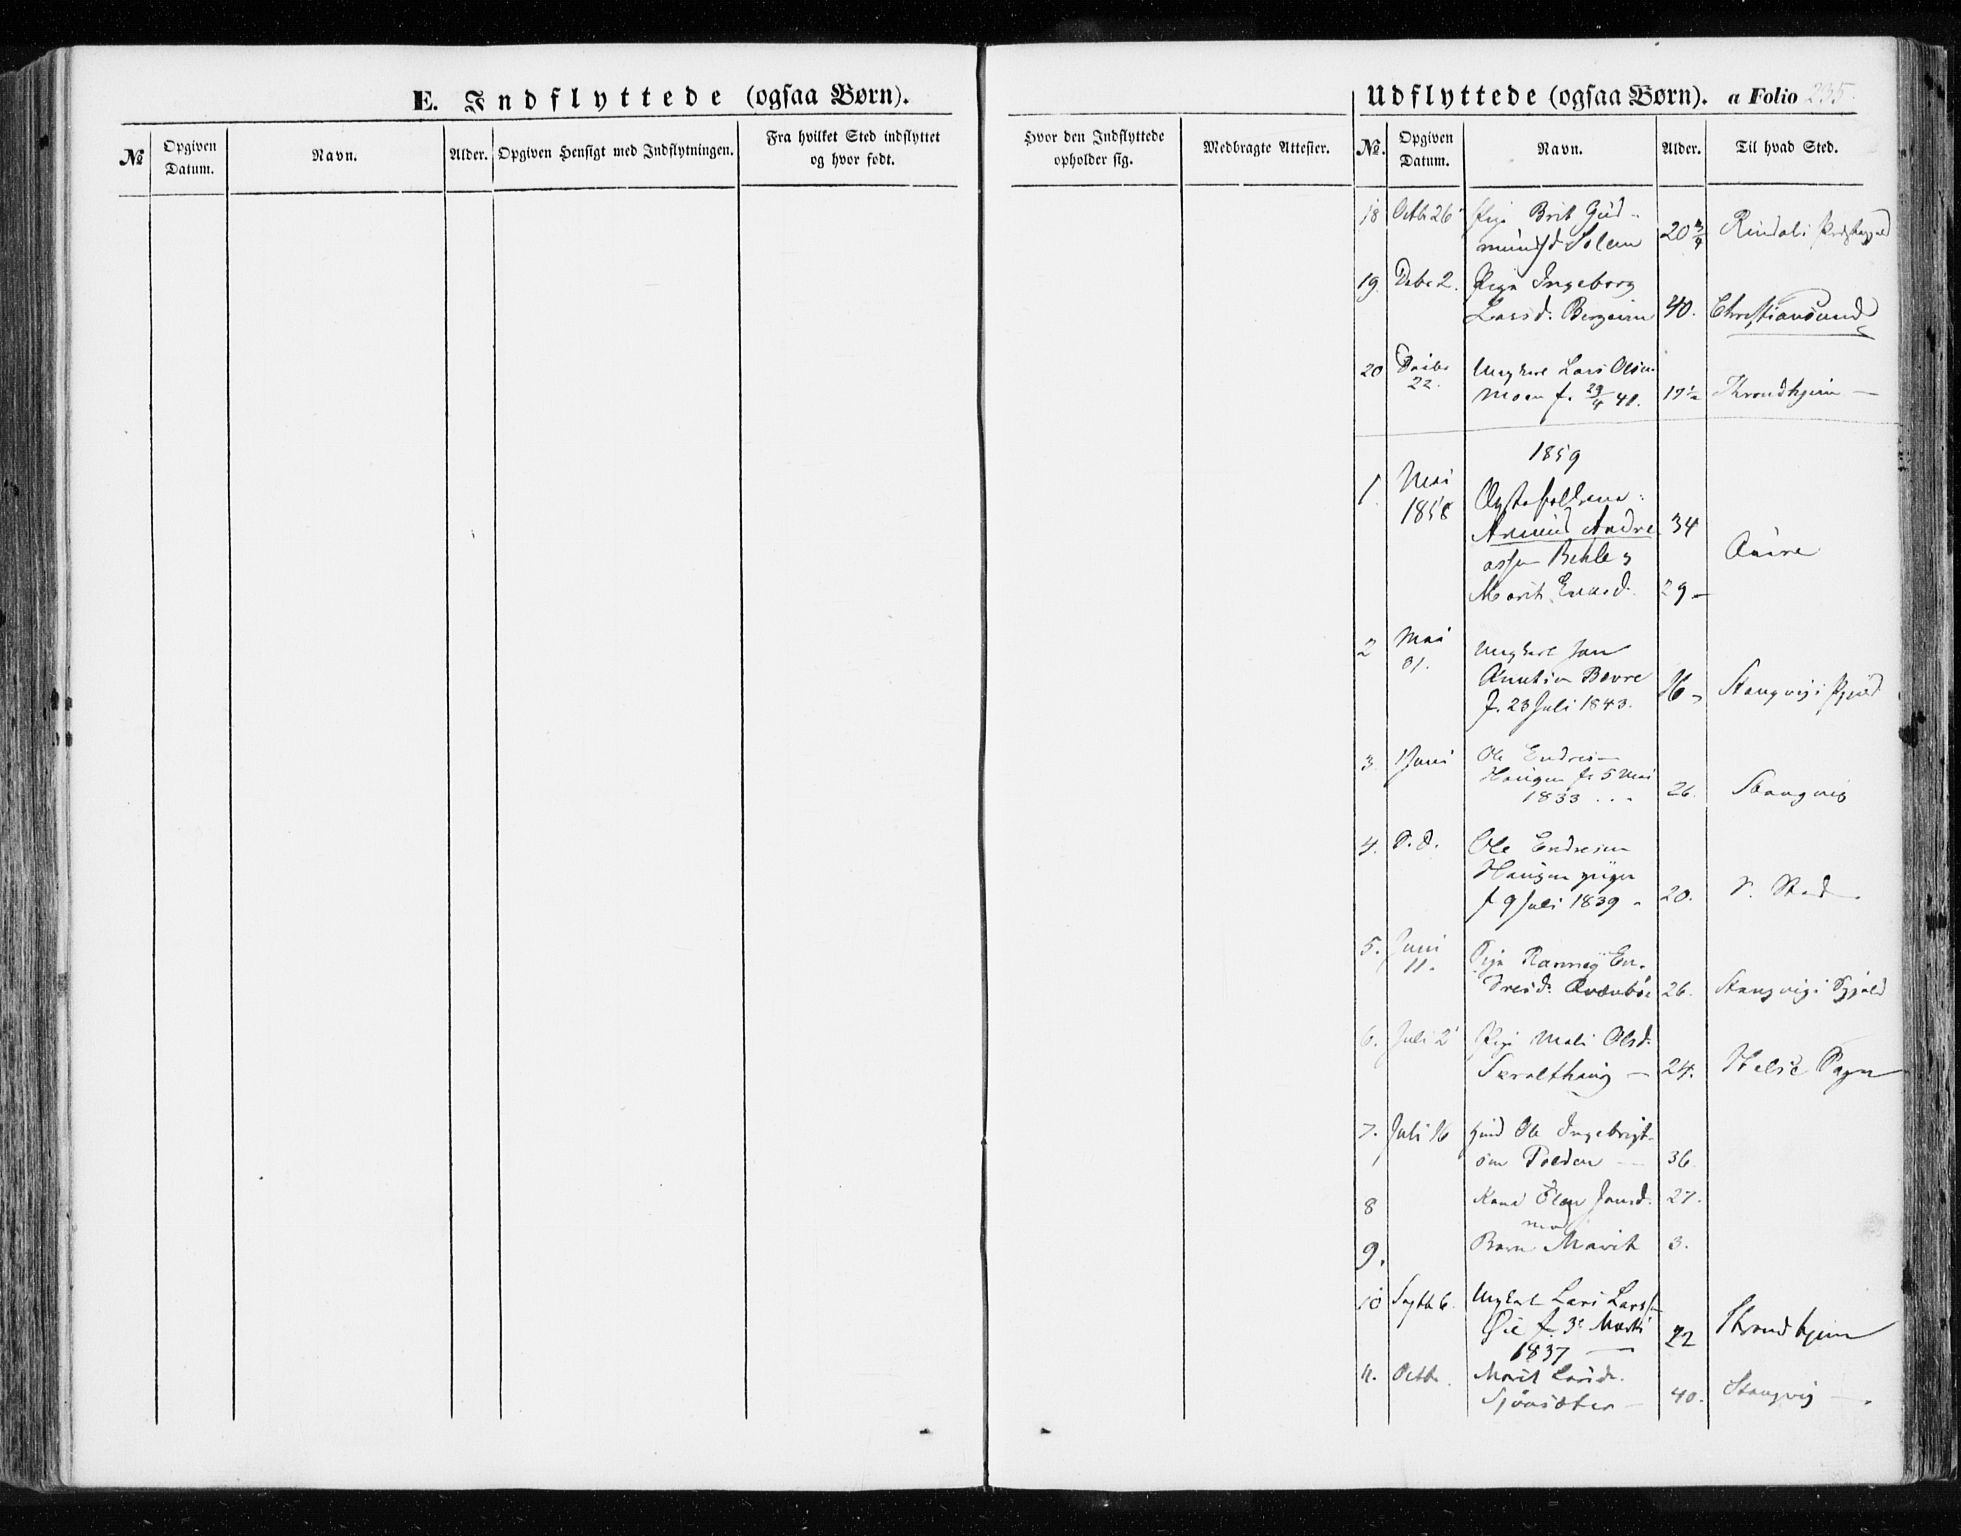 E. Indflyttede (ogsaa Børn).
Udflyttede (ogsaa Børn). a Folio 235.
№ Opgiven Datum. Navn. Alder. Opgiven Hensigt med Indflytningen. Fra hvilket Sted indflyttet og hvor født.
Hvor den Indflyttede opholder sig. Medbragte Attester. №. Opgiven Datum. Navn. Alder. Til hvad Sted.
18 Octb 26 Pige Brit Gud-
mundsd Solem 20 3/4 Rindals
19. Debr 2. Pige Ingeborg
Larsd. Bergeim 40. Christiansund
20 Decbr 22. Ungkarl Lars Olsen
Moen f. 29/4 41. 17 1/2 Throndhjem —
1859
1. Mai 1858 Ægtefolkene:
Arnund Andre 34
assen Behle Aure
Marit Evensd. 29 —
2 Mai 31. Ungkarl Jon
Knutsen Bævre 16 Stangvigs Pgjæld
f. 23 Juli 1843.
3. 1 Juni Ole Endresen
Haugen f. 5 Mai
1833 . . . 26. Stangvig
4. S. d. Ole Endresen
Haugen yngre
f 9 Juli 1839 20. S. Sted
5. Juni 11. Pige Rannog En-
dresd. Qvænbøe 26. Stangvigs Pgjæld
6. Juli 2 Pige Mali Olsd.
Skralthaug — 24. Halse Sogn
7. Juli 16 Huusmd Ole Ingebrigt-
sen Polden — 36.
8 Kone Elen Jonsd. 27.
med
9. Barn Marit 3.
10 Septb 6. Ungkarl Lars Larss
Øie f. 3 Marts 22 Throndhjem
1837 —
11. Octbr. Marit Larsd.
Sjøasæter — 40. Stangvig —.